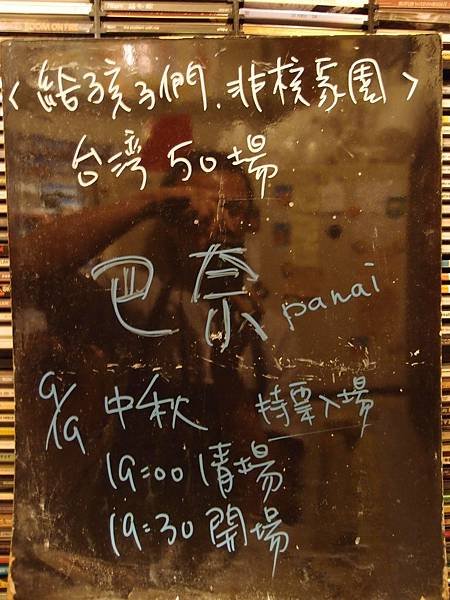 <給孩子們.非核家園>
台灣50場
巴奈 panai
9/19 中秋 持票入場
19:00 清場
19:30 開場